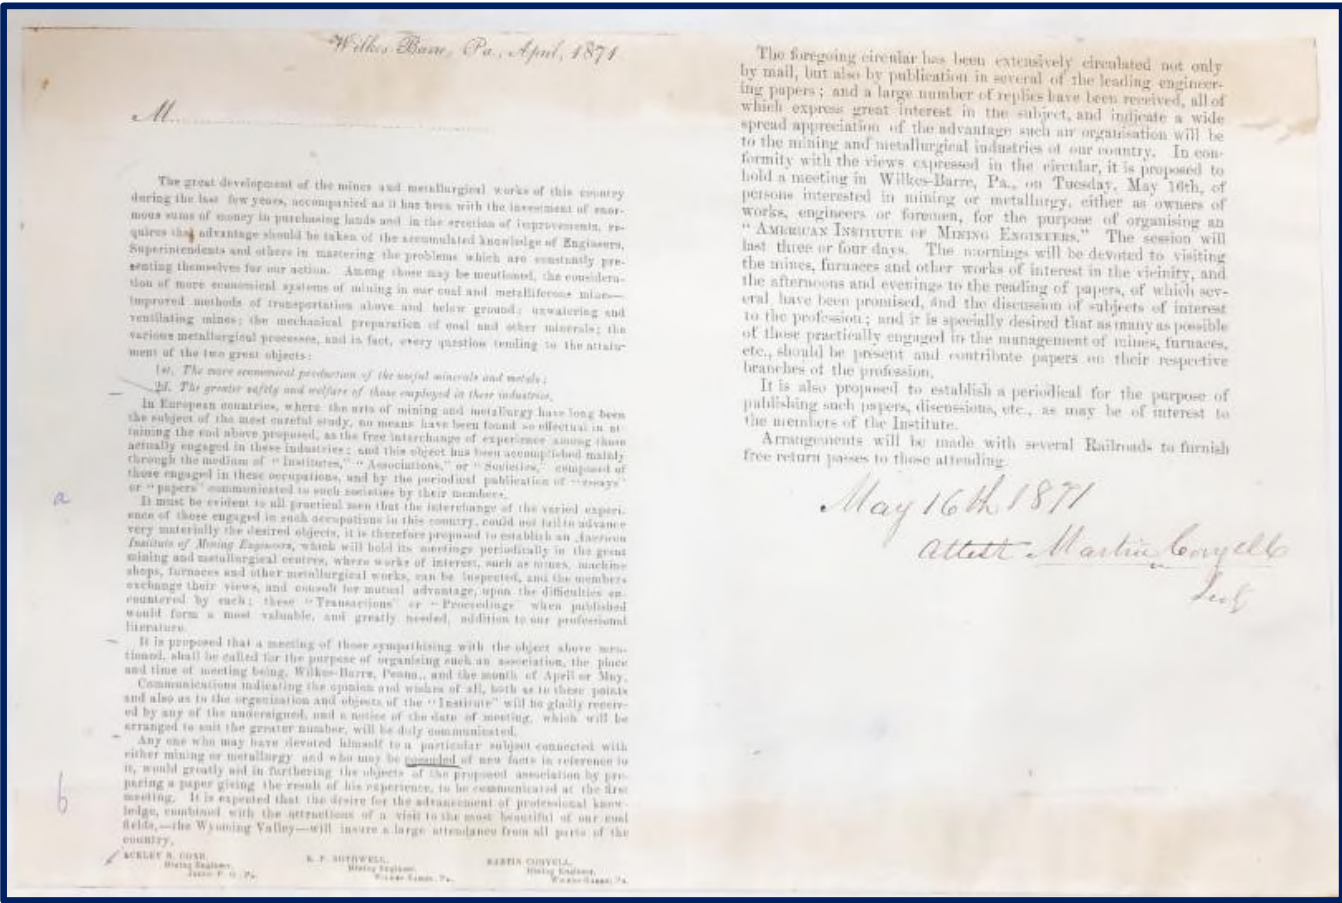 Wilkes-Barre, Pa., April, 1871
M
The great development of the mines and metallurgical works of this country
during the last few years, accompanied as it has been with the investment of enor-
mous sums of money in purchasing lands and in the erection of improvements, re-
quires that advantage should be taken of the accumulated knowledge of Engineers,
Superintendents and others in mastering the problems which are constantly pre-
senting themselves for our action. Among these may be mentioned, the considera-
tion of more economical systems of mining in our coal and metalliferous mines—
improved methods of transportation above and below ground; unwatering and
ventilating mines; the mechanical preparation of coal and other minerals; the
various metallurgical processes, and in fact, every question tending to the attain-
ment of the two great objects:
1st. The more economical production of the useful minerals and metals;
2d. The greater safety and welfare of those employed in these industries.
In European countries, where the arts of mining and metallurgy have long been
the subject of the most careful study, no means have been found so effectual in at-
taining the end above proposed, as the free interchange of experience among those
actually engaged in these industries; and this object has been accomplished mainly
through the medium of "Institutes," "Associations," or "Societies," composed of
those engaged in these occupations, and by the periodical publication of "essays"
or "papers" communicated to such societies by their members.
a
It must be evident to all practical men that the interchange of the varied experi-
ence of those engaged in such occupations in this country, could not fail to advance
very materially the desired objects, it is therefore proposed to establish an American
Institute of Mining Engineers, which will hold its meetings periodically in the great
mining and metallurgical centres, where works of interest, such as mines, machine
shops, furnaces and other metallurgical works, can be inspected, and the members
exchange their views, and consult for mutual advantage, upon the difficulties en-
countered by each; these "Transactions" or "Proceedings" when published
would form a most valuable, and greatly needed, addition to our professional
literature.
It is proposed that a meeting of those sympathising with the object above men-
tioned, shall be called for the purpose of organising such an association, the place
and time of meeting being, Wilkes-Barre, Penna., and the month of April or May.
Communications indicating the opinion and wishes of all, both as to these points
and also as to the organisation and objects of the "Institute" will be gladly receiv-
ed by any of the undersigned, and a notice of the date of meeting, which will be
arranged to suit the greater number, will be duly communicated.
Any one who may have devoted himself to a particular subject connected with
either mining or metallurgy and who may be of new facts in reference to
it, would greatly aid in furthering the objects of the proposed association by pre-
paring a paper giving the result of his experience, to be communicated at the first
b
meeting. It is expected that the desire for the advancement of professional know-
ledge, combined with the attractions of a visit to the most beautiful of our coal
fields,—the Wyoming Valley—will insure a large attendance from all parts of the
country.
ECKLEY B. COXE, R. P. ROTHWELL, MARTIN CORYELL,
Mining Engineer, Mining Engineer, Mining Engineer,
P. O., Pa. Wilkes-Barre, Pa. Wilkes-Barre, Pa.
The foregoing circular has been extensively circulated not only
by mail, but also by publication in several of the leading engineer-
ing papers; and a large number of replies have been received, all of
which express great interest in the subject, and indicate a wide
spread appreciation of the advantage such an organisation will be
to the mining and metallurgical industries of our country. In con-
formity with the views expressed in the circular, it is proposed to
hold a meeting in Wilkes-Barre, Pa., on Tuesday, May 16th, of
persons interested in mining or metallurgy, either as owners of
works, engineers or foremen, for the purpose of organising an
"AMERICAN INSTITUTE OF MINING ENGINEERS." The session will
last three or four days. The mornings will be devoted to visiting
the mines, furnaces and other works of interest in the vicinity, and
the afternoons and evenings to the reading of papers, of which sev-
eral have been promised, and the discussion of subjects of interest
to the profession; and it is specially desired that as many as possible
of those practically engaged in the management of mines, furnaces,
etc., should be present and contribute papers on their respective
branches of the profession.
It is also proposed to establish a periodical for the purpose of
publishing such papers, discussions, etc., as may be of interest to
the members of the Institute.
Arrangements will be made with several Railroads to furnish
free return passes to those attending.
May 16th 1871
attest Martin Coryell
Secy